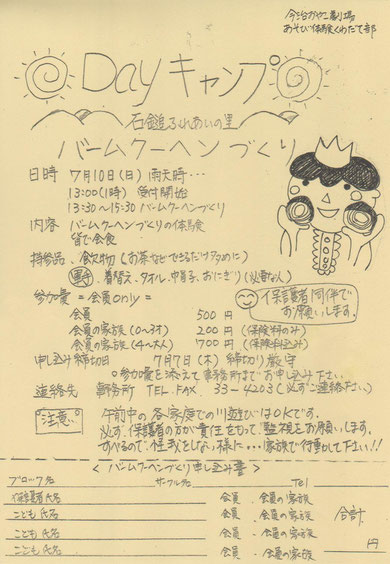 今治おやこ劇場
あそび体験くわだて部
Dayキャンプ
石鎚ふれあいの里
バームクーヘンづくり
日時 7月10日(日) 雨天時…
13:00(1時) 受付開始
13:30~15:30 バームクーヘンづくり
内容 バームクーヘンづくりの体験
皆で会食
持参品、飲物 (お茶などできるだけ多めに)
軍手 着替え、タオル、帽子、おにぎり (必要な人)
参加費 = 会員only =
会員 500円
会員の家族(0~3才) 200円 (保険料のみ)
会員の家族(4~大人) 1700円 (保険料込み)
保護者同伴で
お願いします。
申し込み締切日 7月7日(木) 締切り厳守
参加費を添えて事務所までお申し込み下さい
連絡先 事務所 TEL.FAX. 33-4203 (必ずご連絡下さい)
注意 午前中の各家庭での川遊びはOKです。
必ず、保護者の方が責任をもって、監視をお願いします。
すべるので、怪我をしない様に…家族で行動して下さい!!
<バームクーヘンづくり申し込み書>
ブロック名 サークル名 Tel
保護者氏名 会員 ・会員の家族 合計
こども氏名 会員 ・会員の家族
こども氏名 会員 ・会員の家族
こども氏名 会員 ・会員の家族 円